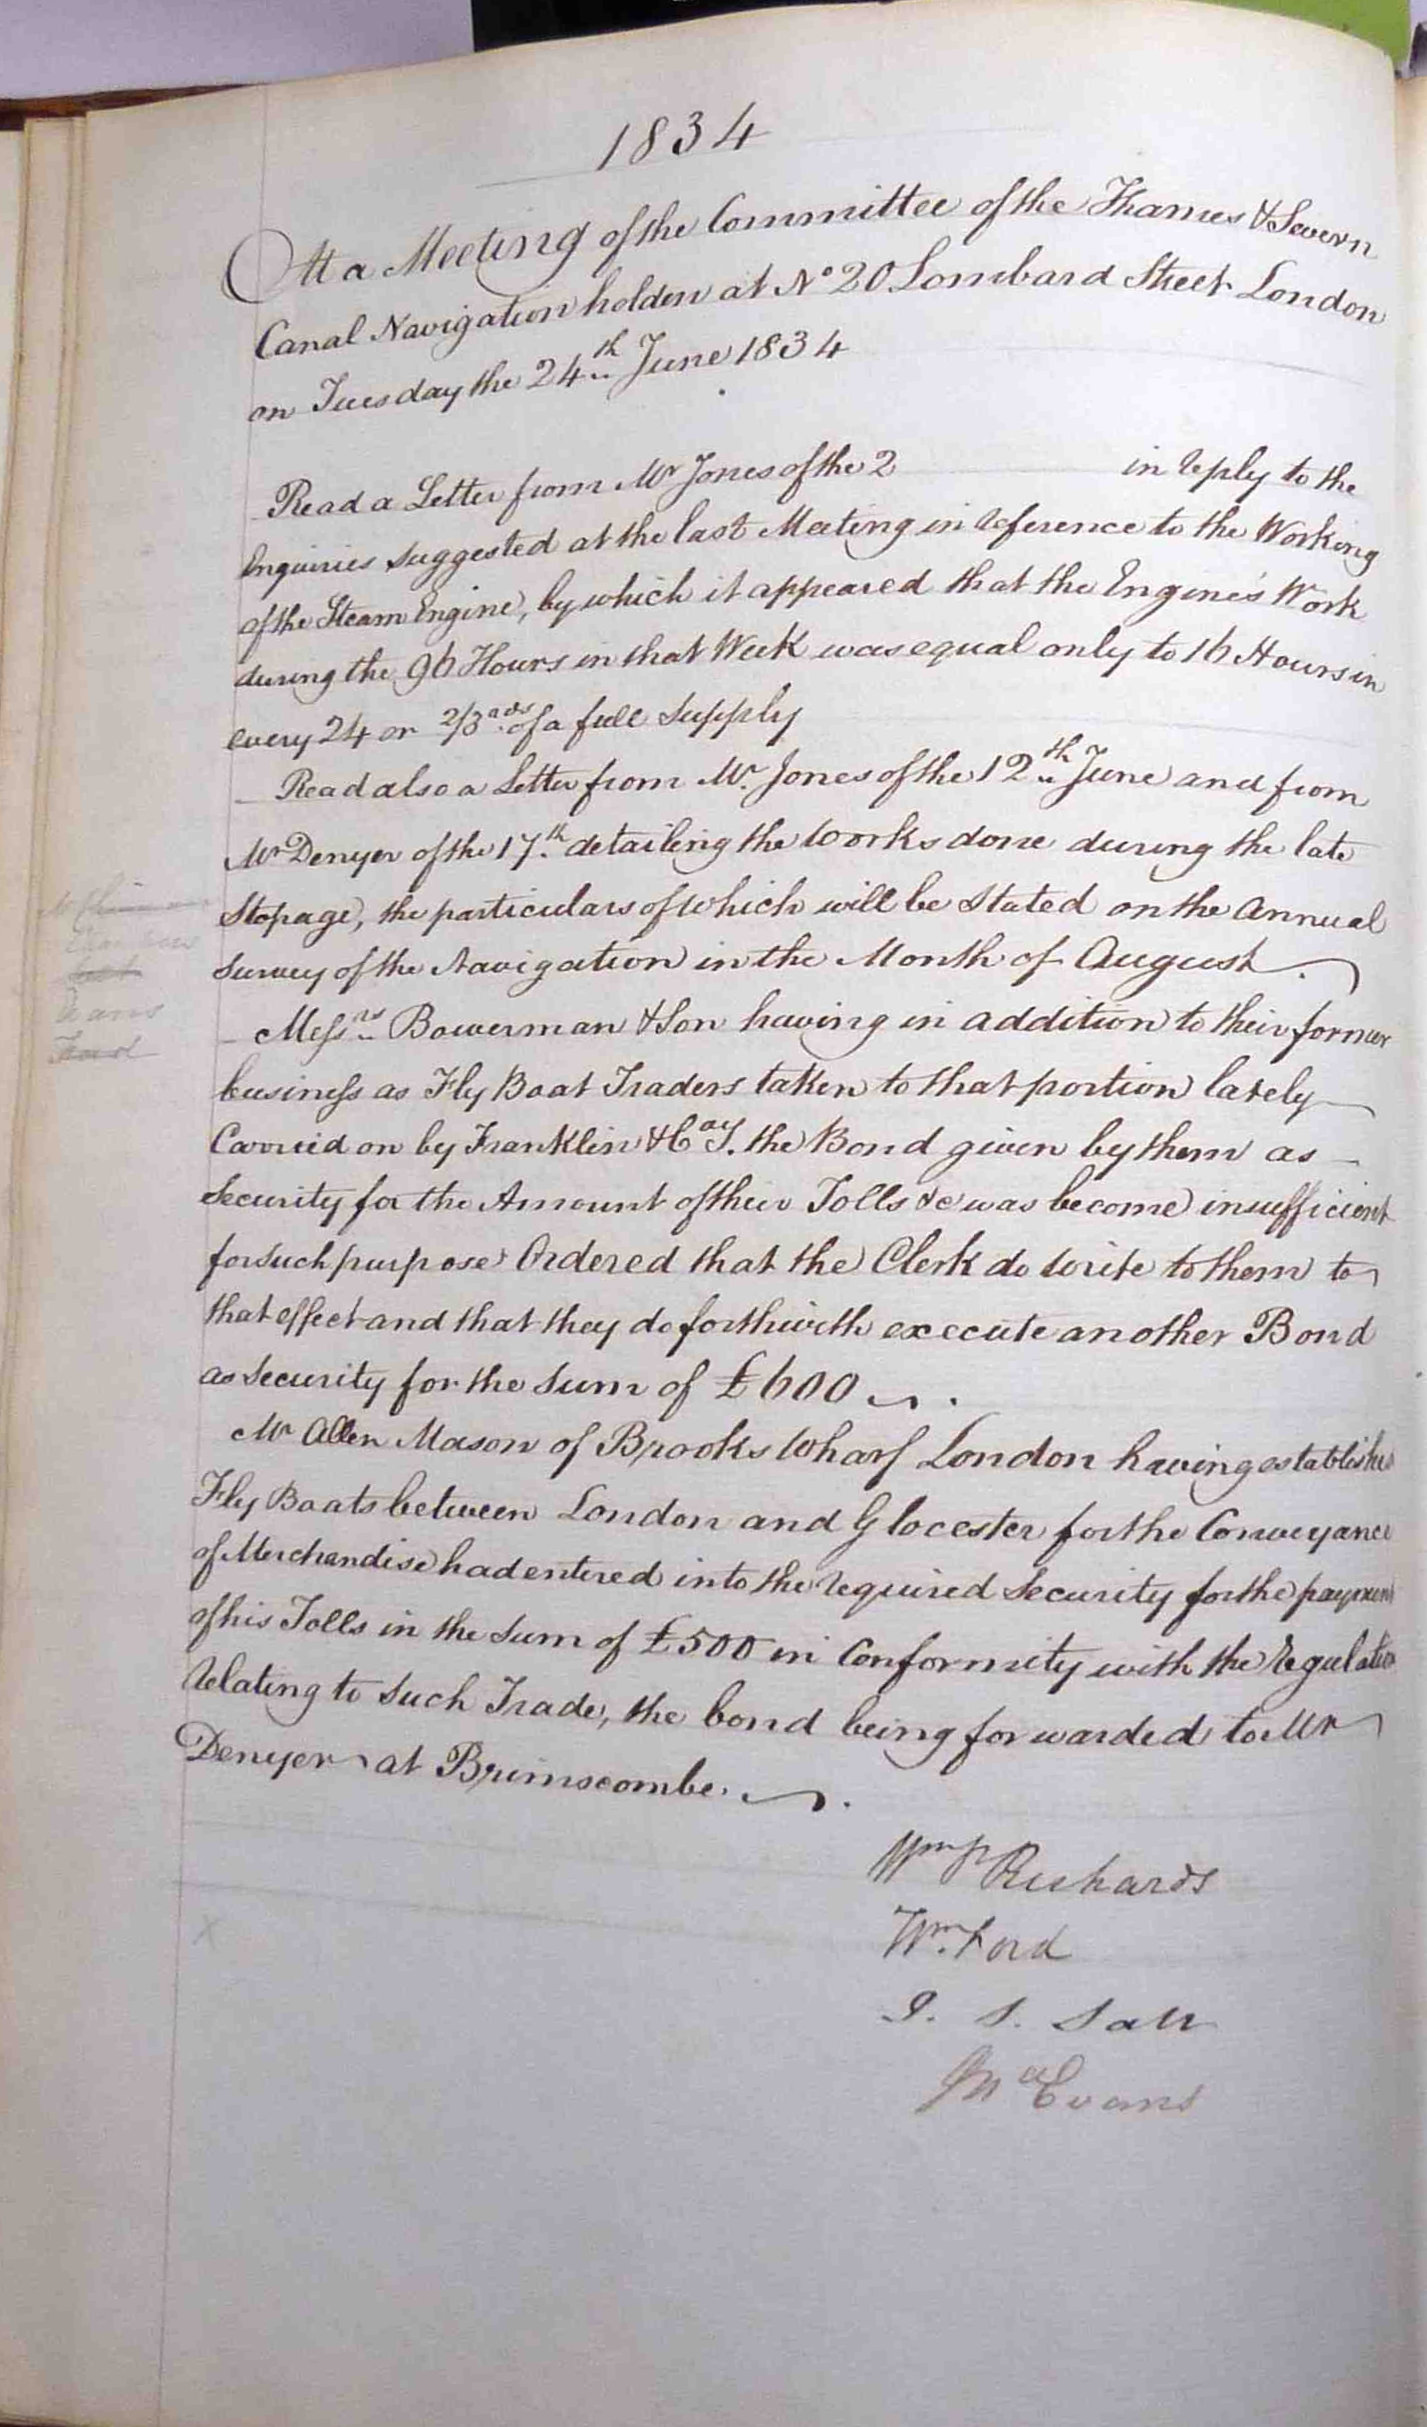 1834
At a Meeting of the Committee of the Thames & Severn
Canal Navigation holden at No 20 Lombard Street London
on Tuesday the 24th June 1834
Read a Letter from Mr Jones of the 2 in reply to the
Enquiries suggested at the last Meeting in reference to the Working
of the Steam Engine, by which it appeared that the Engine's Work
during the 96 Hours in that Week was equal only to 16 Hours in
every 24 or 2/3ds of a full supply
Read also a Letter from Mr. Jones of the 12th June and from
Mr Denyer of the 17th detailing the works done during the late
Stopage, the particulars of which will be stated on the Annual
survey of the Navigation in the Month of August.
Messrs Bowerman & Son having in addition to their former
business as Fly Boat Traders taken to that portion lately
Carried on by Franklin & Coy. the Bond given by them as
Security for the Amount of their Tolls &c was become insufficient
for such purpose Ordered that the Clerk do write to them to
that effect and that they do forthwith execute another Bond
as security for the sum of £600.
Mr Allen Mason of Brooks Wharf London having established
Fly Boats between London and Glocester for the Conveyance
of Merchandise had entered into the required Security for the payment
of his Tolls in the sum of £500 in Conformity with the regulation
relating to such Trade, the bond being forwarded to Mr
Denyer at Brimscombe.
Evans
Ford
Wm Richards
Wm. Ford
J. S. Salt
Evans